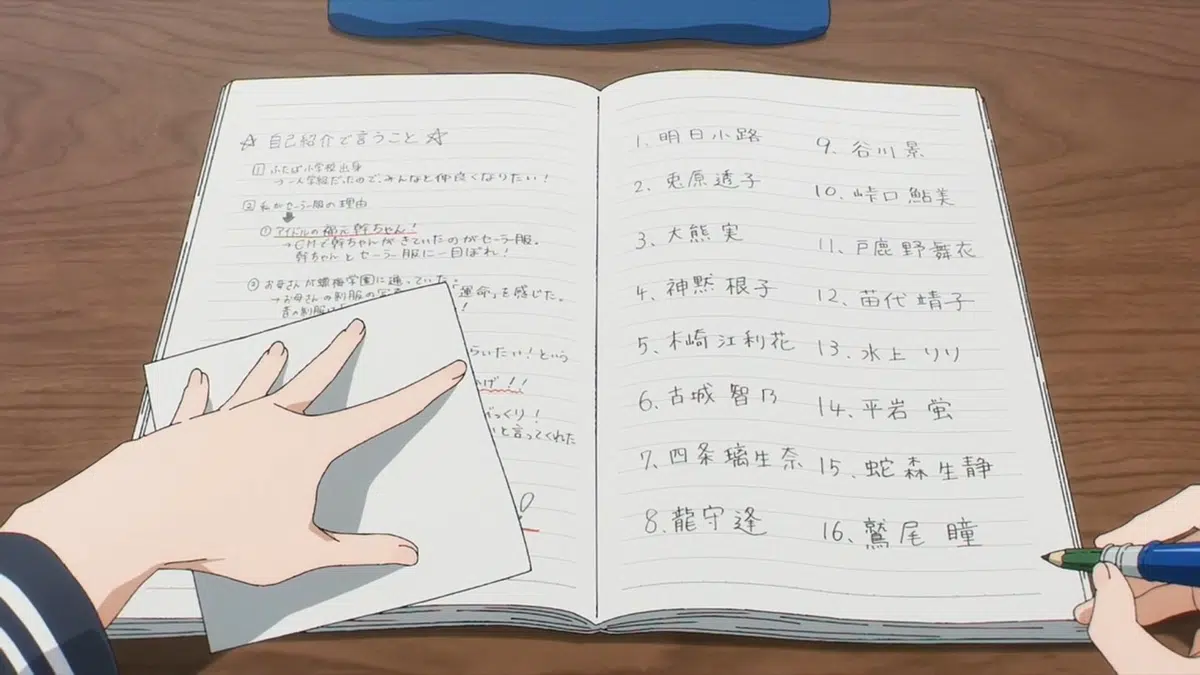 ☆ 自己紹介で言うこと ☆
1 ふたば小学校出身
→一人学級だったので、みんなと仲良くなりたい！
2 私がセーラー服の理由
① アイドルの福元幹ちゃん！
→CMで幹ちゃんがきていたのがセーラー服。
幹ちゃんとセーラー服に一目ぼれ！
② お母さんが蠟梅学園に通っていた。
→お母さんの制服の写真 運命」を感じた。
昔の制服は ！
らいたい！という
かげ！！
びっくり！
いと言ってくれた
！
1. 明日小路
2. 兎原透子
3. 大熊実
4. 神黙根子
5. 木崎江利花
6. 古城智乃
7. 四条璃生奈
8. 龍守逢
9. 谷川景
10. 峠口鮎美
11. 戸鹿野舞衣
12. 苗代靖子
13. 水上りり
14. 平岩蛍
15. 蛇森生静
16. 鷲尾瞳